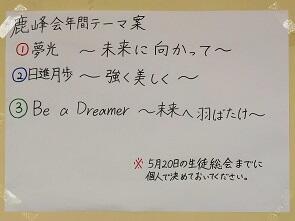 鹿峰会年間テーマ案
①夢光 ～未来に向かって～
②日進月歩 ～強く美しく～
③Be a Dreamer ～未来へ羽ばたけ～
※5月20日の生徒総会までに
個人で決めておいてください。